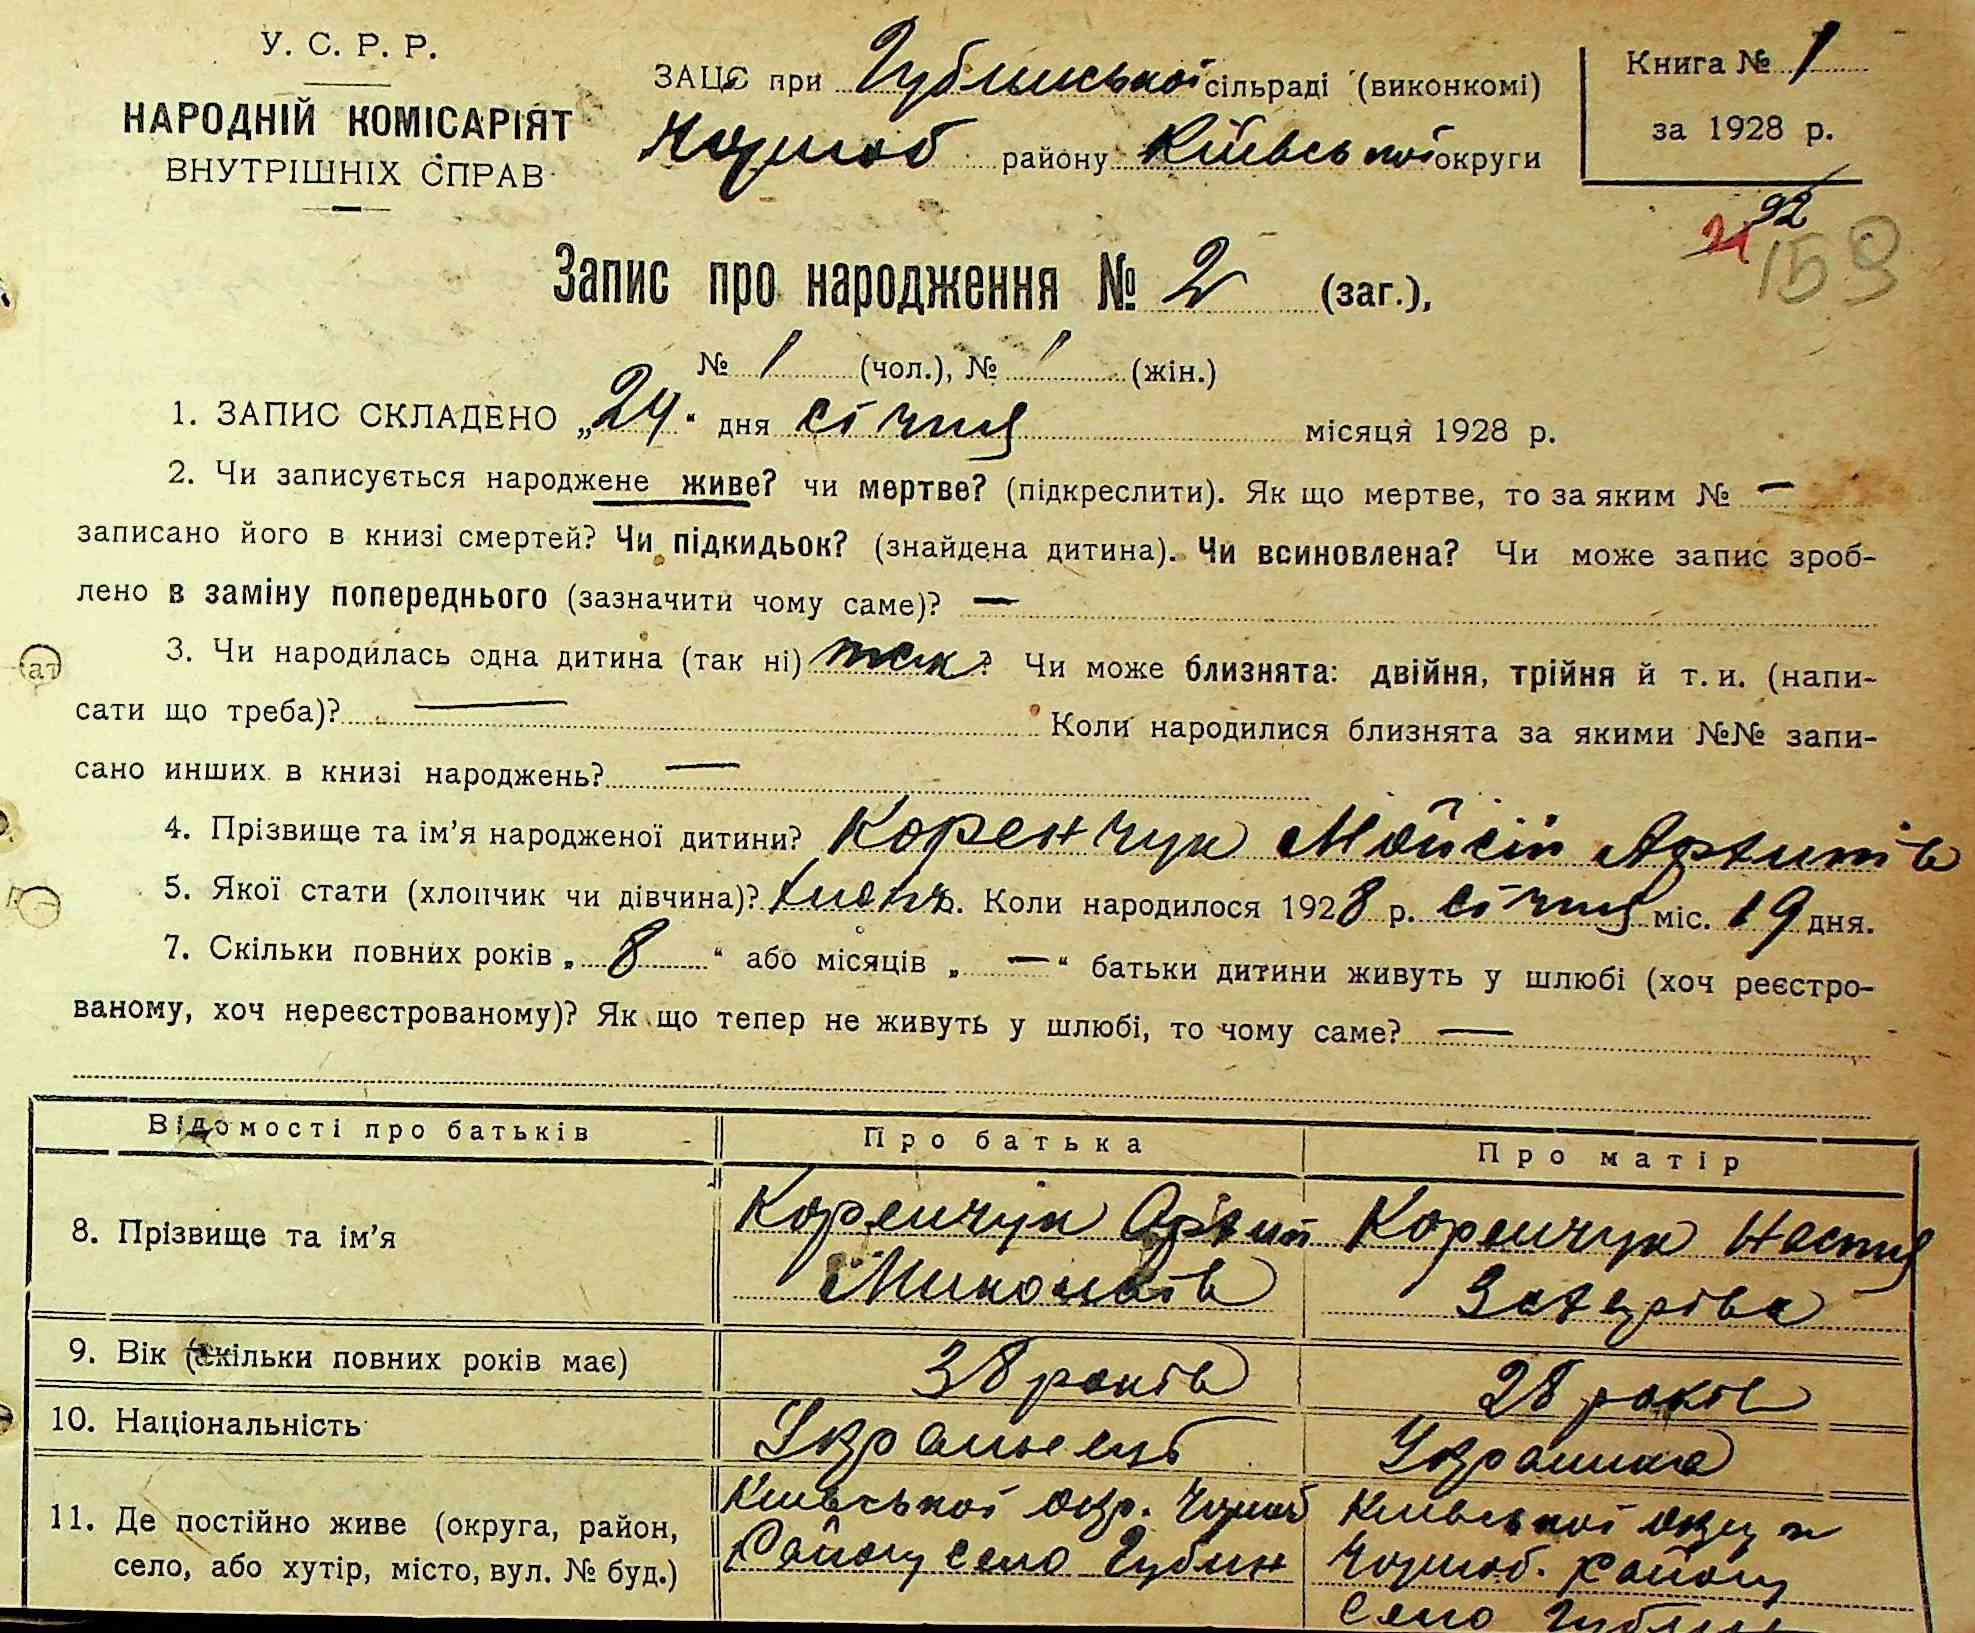 У. С. Р. Р.
НАРОДНІЙ КОМІСАРІЯТ
ВНУТРІШНІХ СПРАВ
ЗАЦС при Гублинської сільраді (виконкомі)
району Київської округи
Книга № 1
за 1928 р.
92
21
159
Запис про народження № 2 (заг.),
№ 1 (чол.), № (жін.)
1. ЗАПИС СКЛАДЕНО „24“ дня січня місяця 1928 р.
2. Чи записується народжене живе? чи мертве? (підкреслити). Як що мертве, то за яким № —
записано його в книзі смертей? Чи підкидьок? (знайдена дитина). Чи всиновлена? Чи може запис зроб-
лено в заміну попереднього (зазначити чому саме)? —
3. Чи народилась одна дитина (так ні) так? Чи може близнята: двійня, трійня й т. и. (напи-
сати що треба)? — Коли народилися близнята за якими №№ запи-
сано инших в книзі народжень? —
4. Прізвище та ім'я народженої дитини? Коренчук Мойсій Архипів
5. Якої стати (хлопчик чи дівчина)? хлопч. Коли народилося 1928 р. січня міс. 19 дня.
7. Скільки повних років „8“ або місяців „—“ батьки дитини живуть у шлюбі (хоч реєстро-
ваному, хоч нереєстрованому)? Як що тепер не живуть у шлюбі, то чому саме? —
Відомості про батьків Про батька Про матір
8. Прізвище та ім'я Коренчук Архип Коренчук Настя
Миколаїв Захарівна
9. Вік (скільки повних років має) 38 років 28 років
10. Національність Українець Українка
11. Де постійно живе (округа, район, Київської окр. Чорноб Київської округи
село, або хутір, місто, вул. № буд.) Району село Губин Чорноб. Району
село Губин